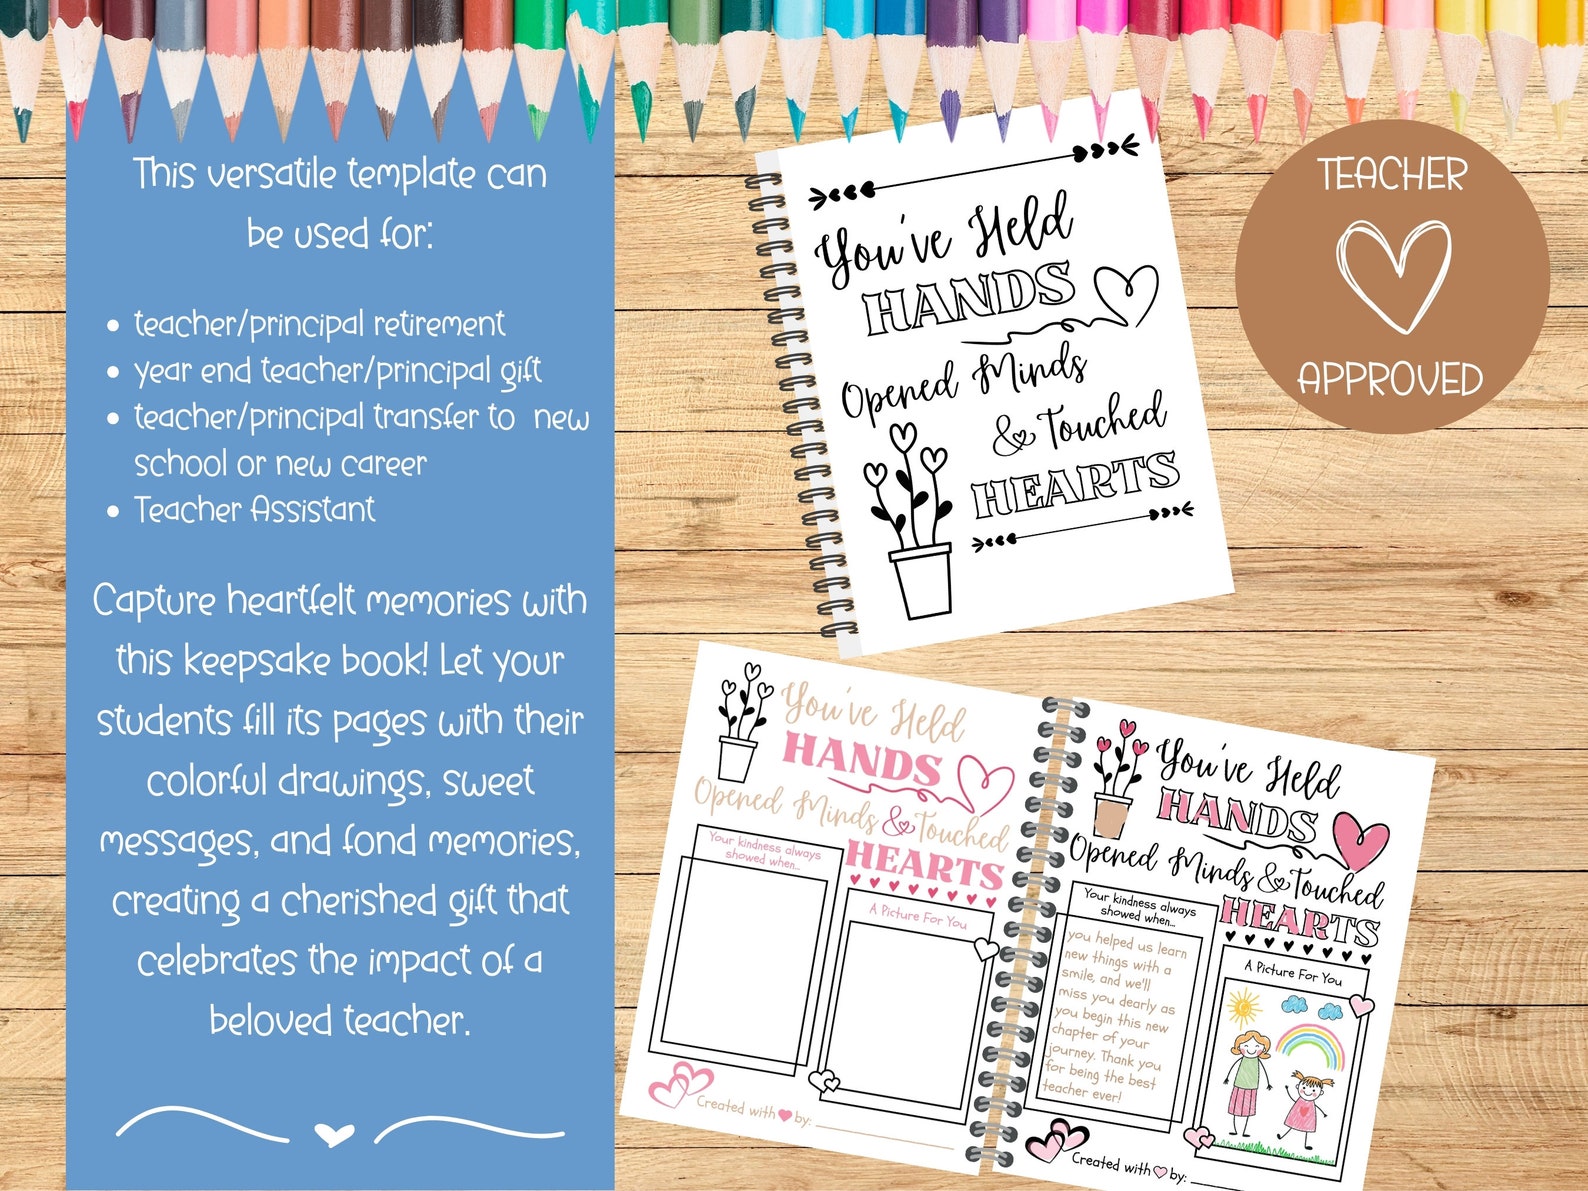 This versatile template can
be used for:
• teacher/principal retirement
• year end teacher/principal gift
• teacher/principal transfer to new
school or new career
• Teacher Assistant
Capture heartfelt memories with
this keepsake book! Let your
students fill its pages with their
colorful drawings, sweet
messages, and fond memories,
creating a cherished gift that
celebrates the impact of a
beloved teacher.
You've Held
HANDS
Opened Minds
& Touched
HEARTS
TEACHER
APPROVED
You've Held
HANDS
Opened Minds & Touched
HEARTS
Your kindness always
showed when...
A Picture For You
Created with by:
You've Held
HANDS
Opened Minds & Touched
HEARTS
Your kindness always
showed when...
you helped us learn
new things with a
smile, and we'll
miss you dearly as
you begin this new
chapter of your
journey. Thank you
for being the best
teacher ever!
A Picture For You
Created with by: